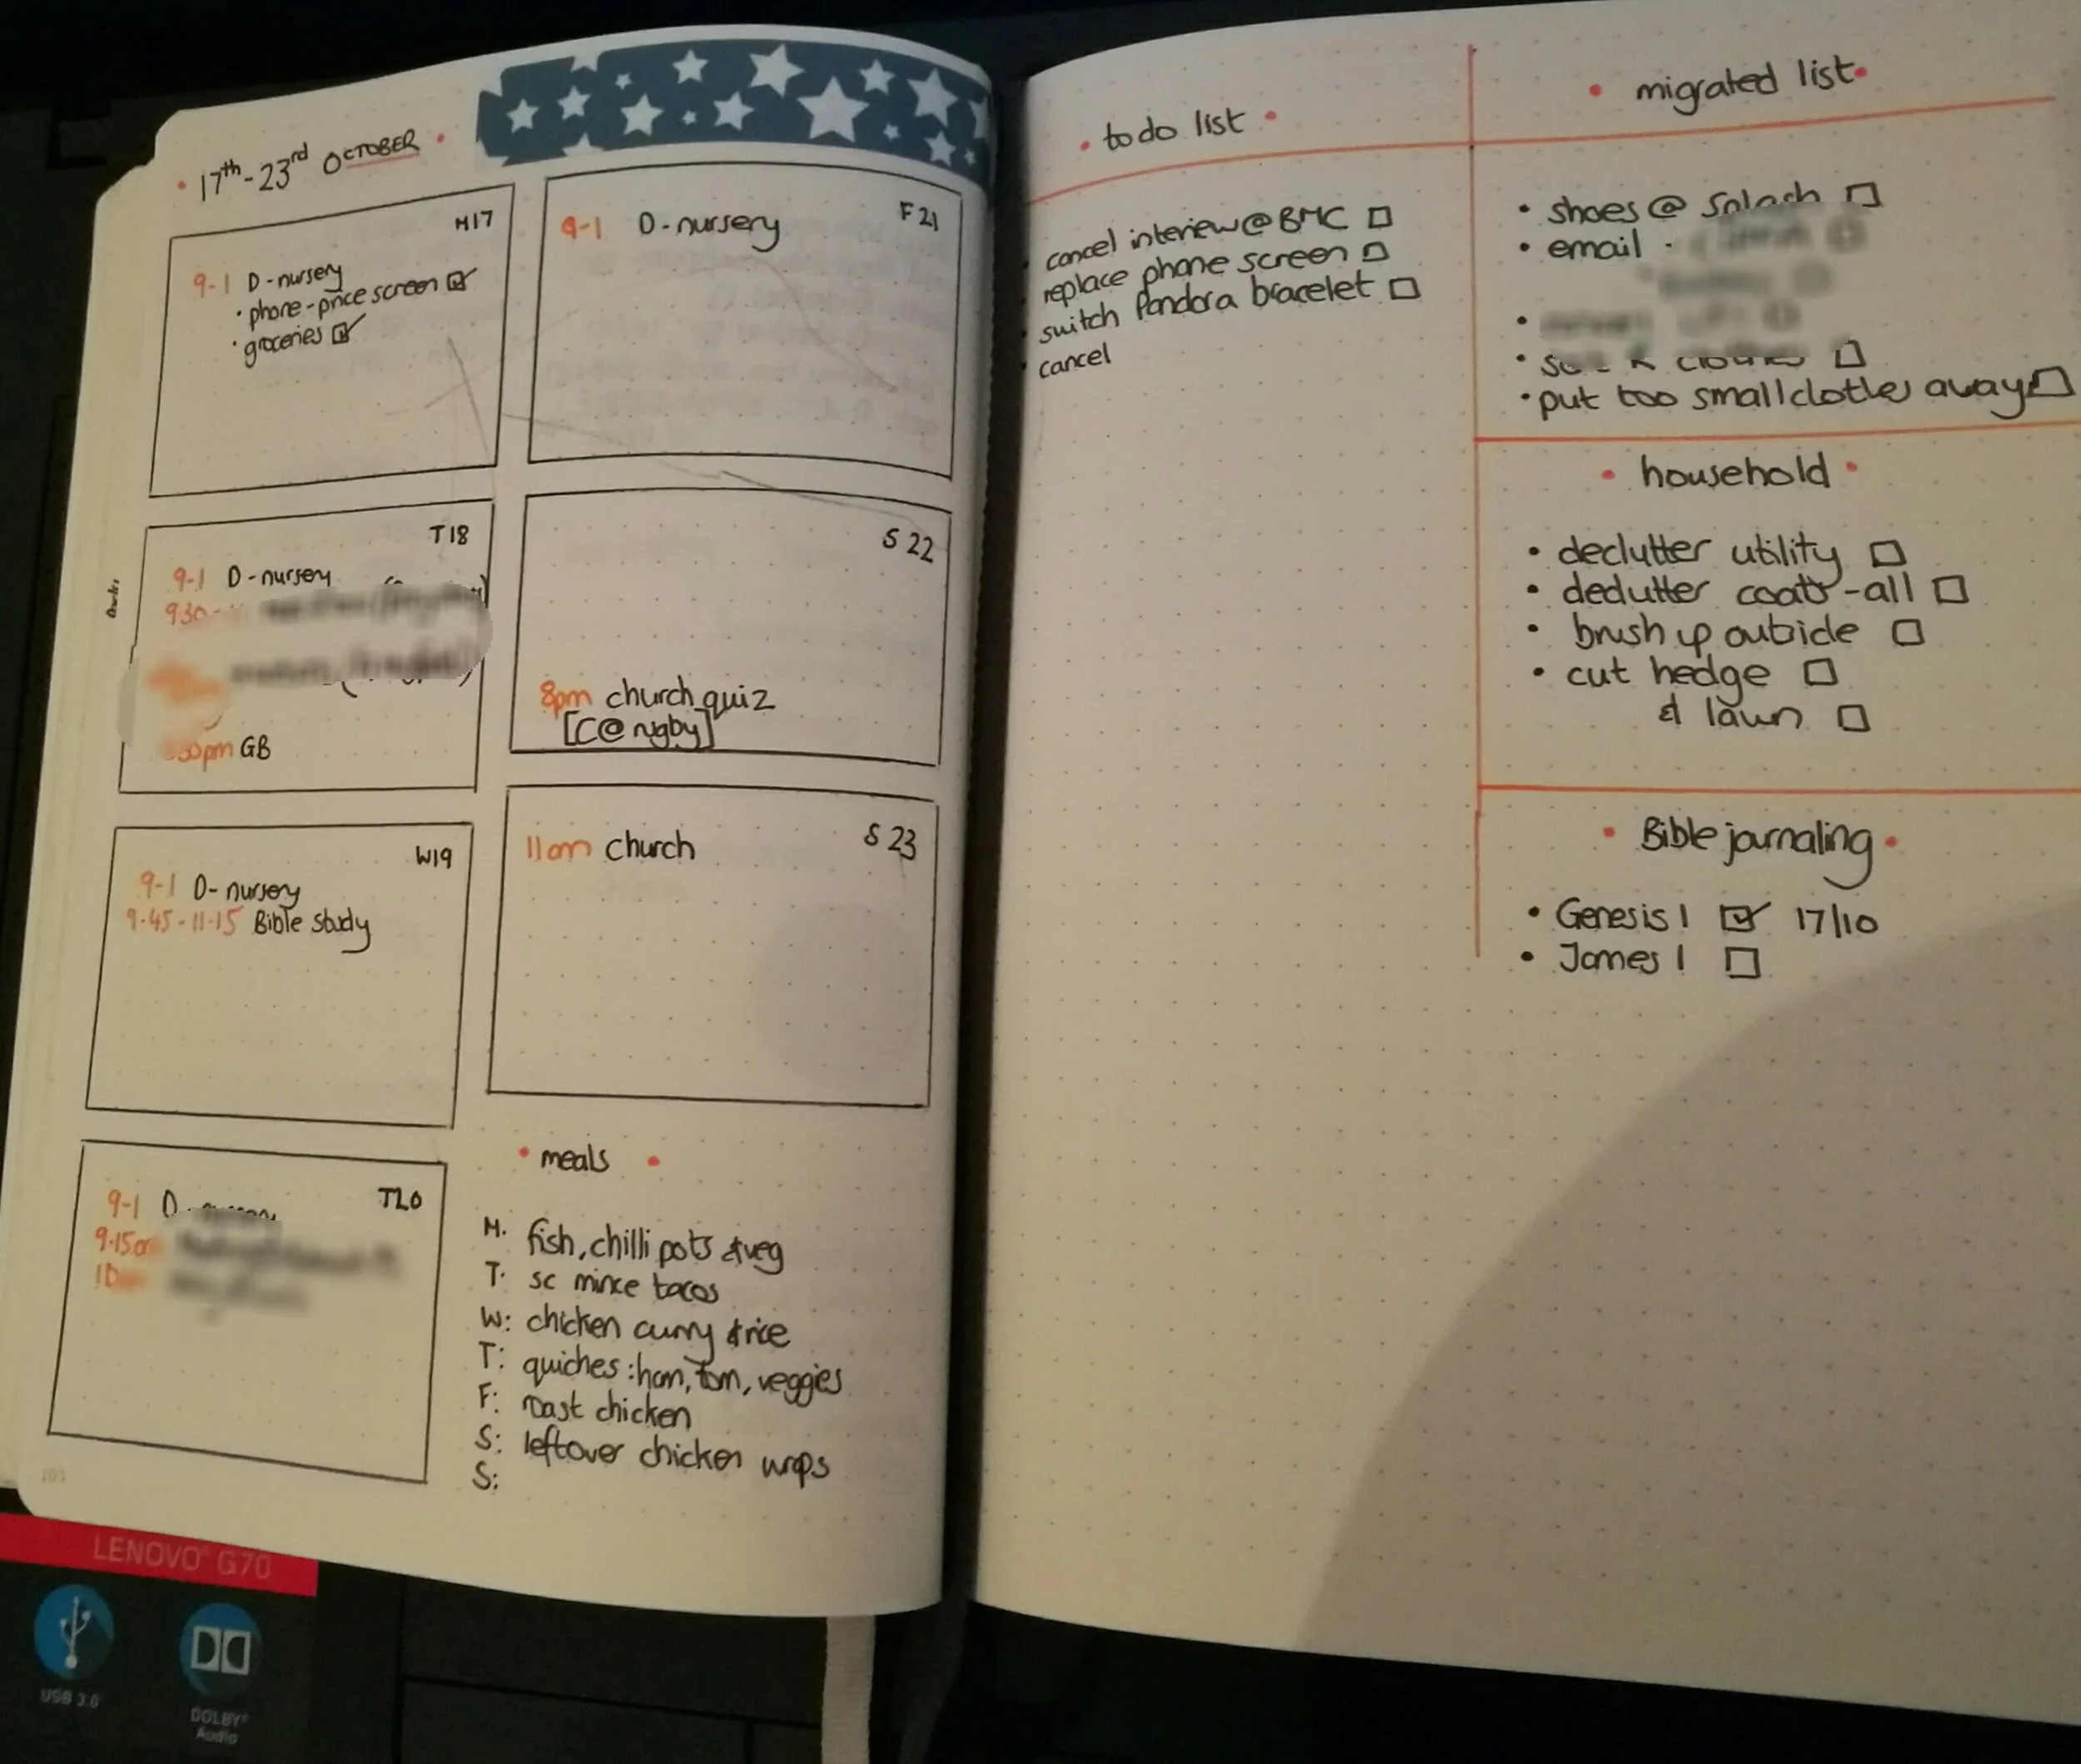 17th-23rd OCTOBER
M17
9-1 D-nursery
• phone-price screen
• groceries
T18
9-1 D-nursery
930
pm GB
W19
9-1 D-nursery
9.45-11.15 Bible study
T20
9-1 D-nursery
9.15am
F21
9-1 D-nursery
S 22
8pm church quiz
[C@rugby]
S 23
11am church
• meals •
M. fish, chilli pots & veg
T. sc mince tacos
W: chicken curry & rice
T: quiches: ham, tom, veggies
F: roast chicken
S: leftover chicken wraps
S:
103
• to do list •
• cancel interview@BMC
• replace phone screen
• switch Pandora bracelet
• cancel
• migrated list •
• shoes @ Splash
• email
• clothes
• put too small clothes away
• household •
• declutter utility
• declutter coats-all
• brush up outside
• cut hedge
& lawn
• Bible journaling •
• Genesis 1 17/10
• James 1
LENOVO G70
USB 3.0
DOLBY
Audio